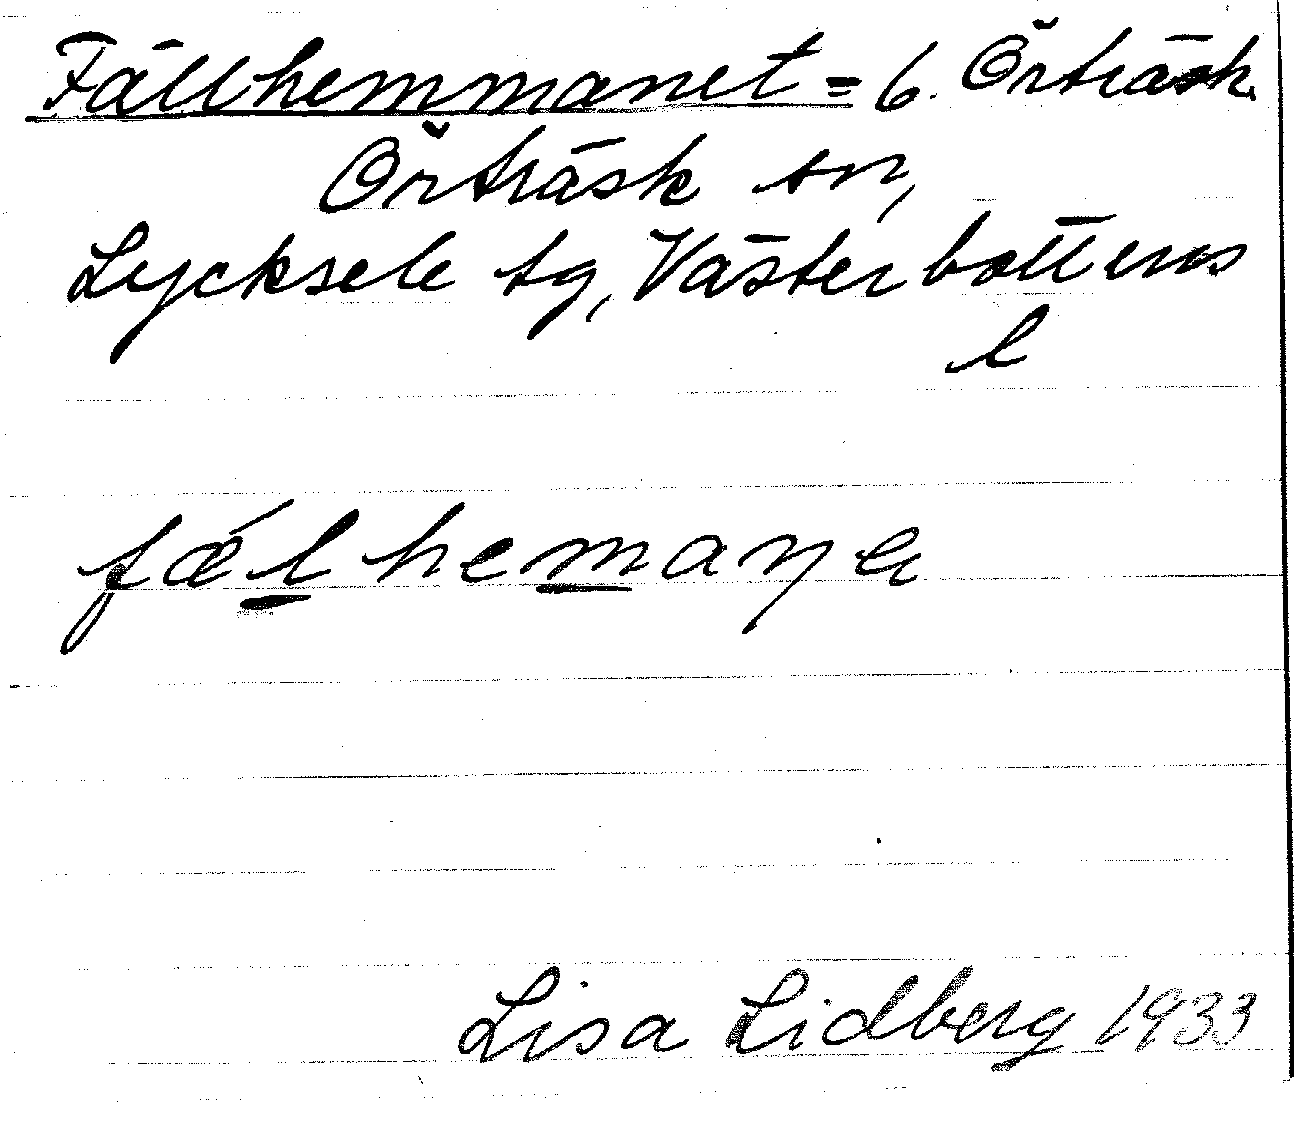 Fällhemmanet = 6. Örträsk.
Örträsk sn,
Lycksele tg, Västerbottens
l
fælhemaṇe
Lisa Lidberg 1933